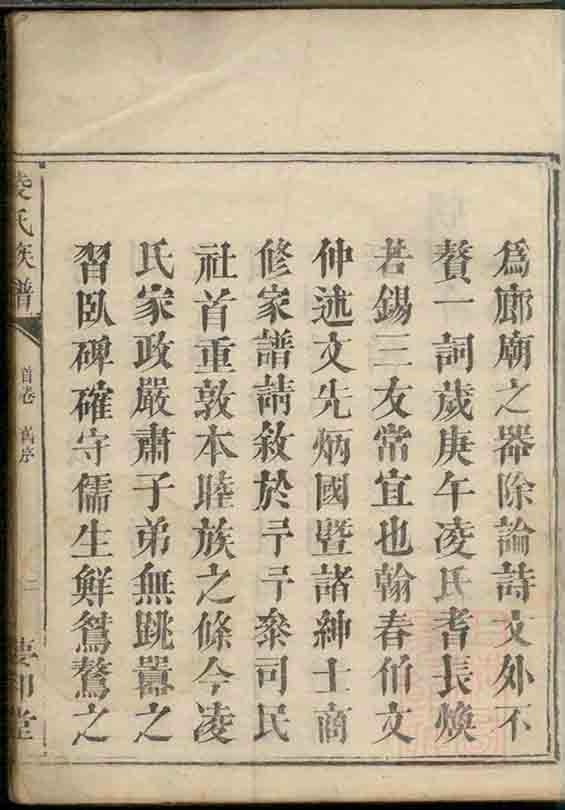 為廊廟之器除論詩文外不
贅一詞歲庚午凌氏耆長煥
若錫三友常宜也翰春伯文
仲述文先炳國暨諸紳士商
修家譜請敘於予予忝司民
社首重敦本睦族之條今凌
氏家政嚴肅子弟無跳囂之
習臥碑確守儒生鮮鴛鶩之
凌氏族譜
首卷 舊序
二
堂